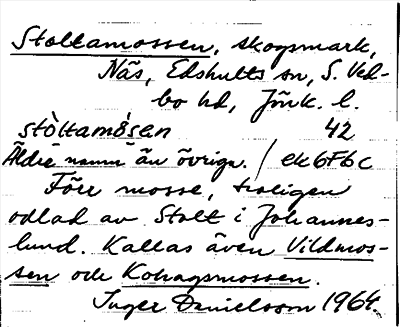 Stoltamossen, skogsmark,
Näs, Edshults sn, S. Ved-
bo hd, Jönk. l.
stòltamåsen 42
Äldre namn än övriga. / ek6F6c
Förr mosse, troligen
odlad av Stolt i Johannes-
lund. Kallas även Vildmos-
sen och Kohagsmossen.
Inger Danielsson 1964.